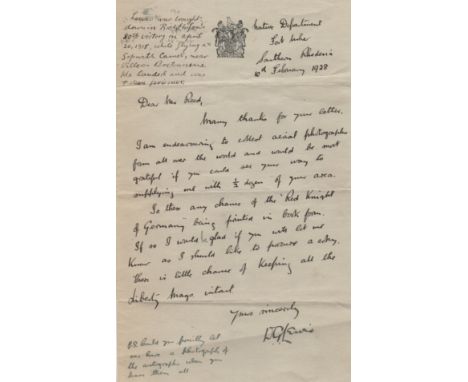 Lewis was brought
down in Richthofen's
80th victory in April
20, 1918, while flying a
Sopwith Camel, near
Villers Bretonneux
He landed and was
taken prisoner.
Native Department
Fort Usher
Southern Rhodesia
10th February 1938
Dear Mr Reed,
Many thanks for your letter.
I am endeavouring to collect aerial photographs
from all over the world and would be most
grateful if you could see your way to
supplying me with ½ dozen of your area.
Is there any chance of the "Red Knight
of Germany" being printed in book form.
If so I would be glad if you will let me
know as I should like to procure a copy.
There is little chance of keeping all the
Liberty Mags intact
Yours sincerely
D G Lewis
P.S. Could you possibly let
me have a photograph of
the autographs when you
have them all